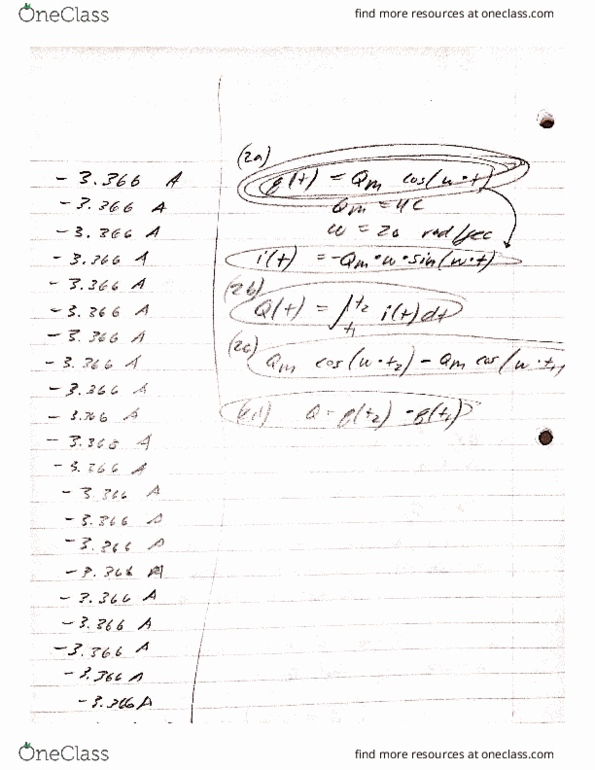 OneClass
find more resources at oneclass.com
- 3.366 A
- 3.366 A
- 3.366 A
- 3.366 A
- 3.366 A
- 3.366 A
- 3.366 A
- 3.366 A
- 3.366 A
- 3.366 A
- 3.365 A
- 3.266 A
- 3.366 A
- 3.366 A
- 3.266 A
- 3.368 A
- 3.366 A
- 3.366 A
- 3.366 A
- 3.366 A
- 3.366 A
(2a)
q(t) = Qm cos(w·t)
Qm = 4C
w = 20 rad/sec
i(t) = -Qm·w·sin(w·t)
(2b)
Q(t) = ∫t1 t2 i(t)dt
(2c)
Qm cos(w·t2) - Qm cos(w·t1
Q = q(t2) - q(t1)
OneClass
find more resources at oneclass.com